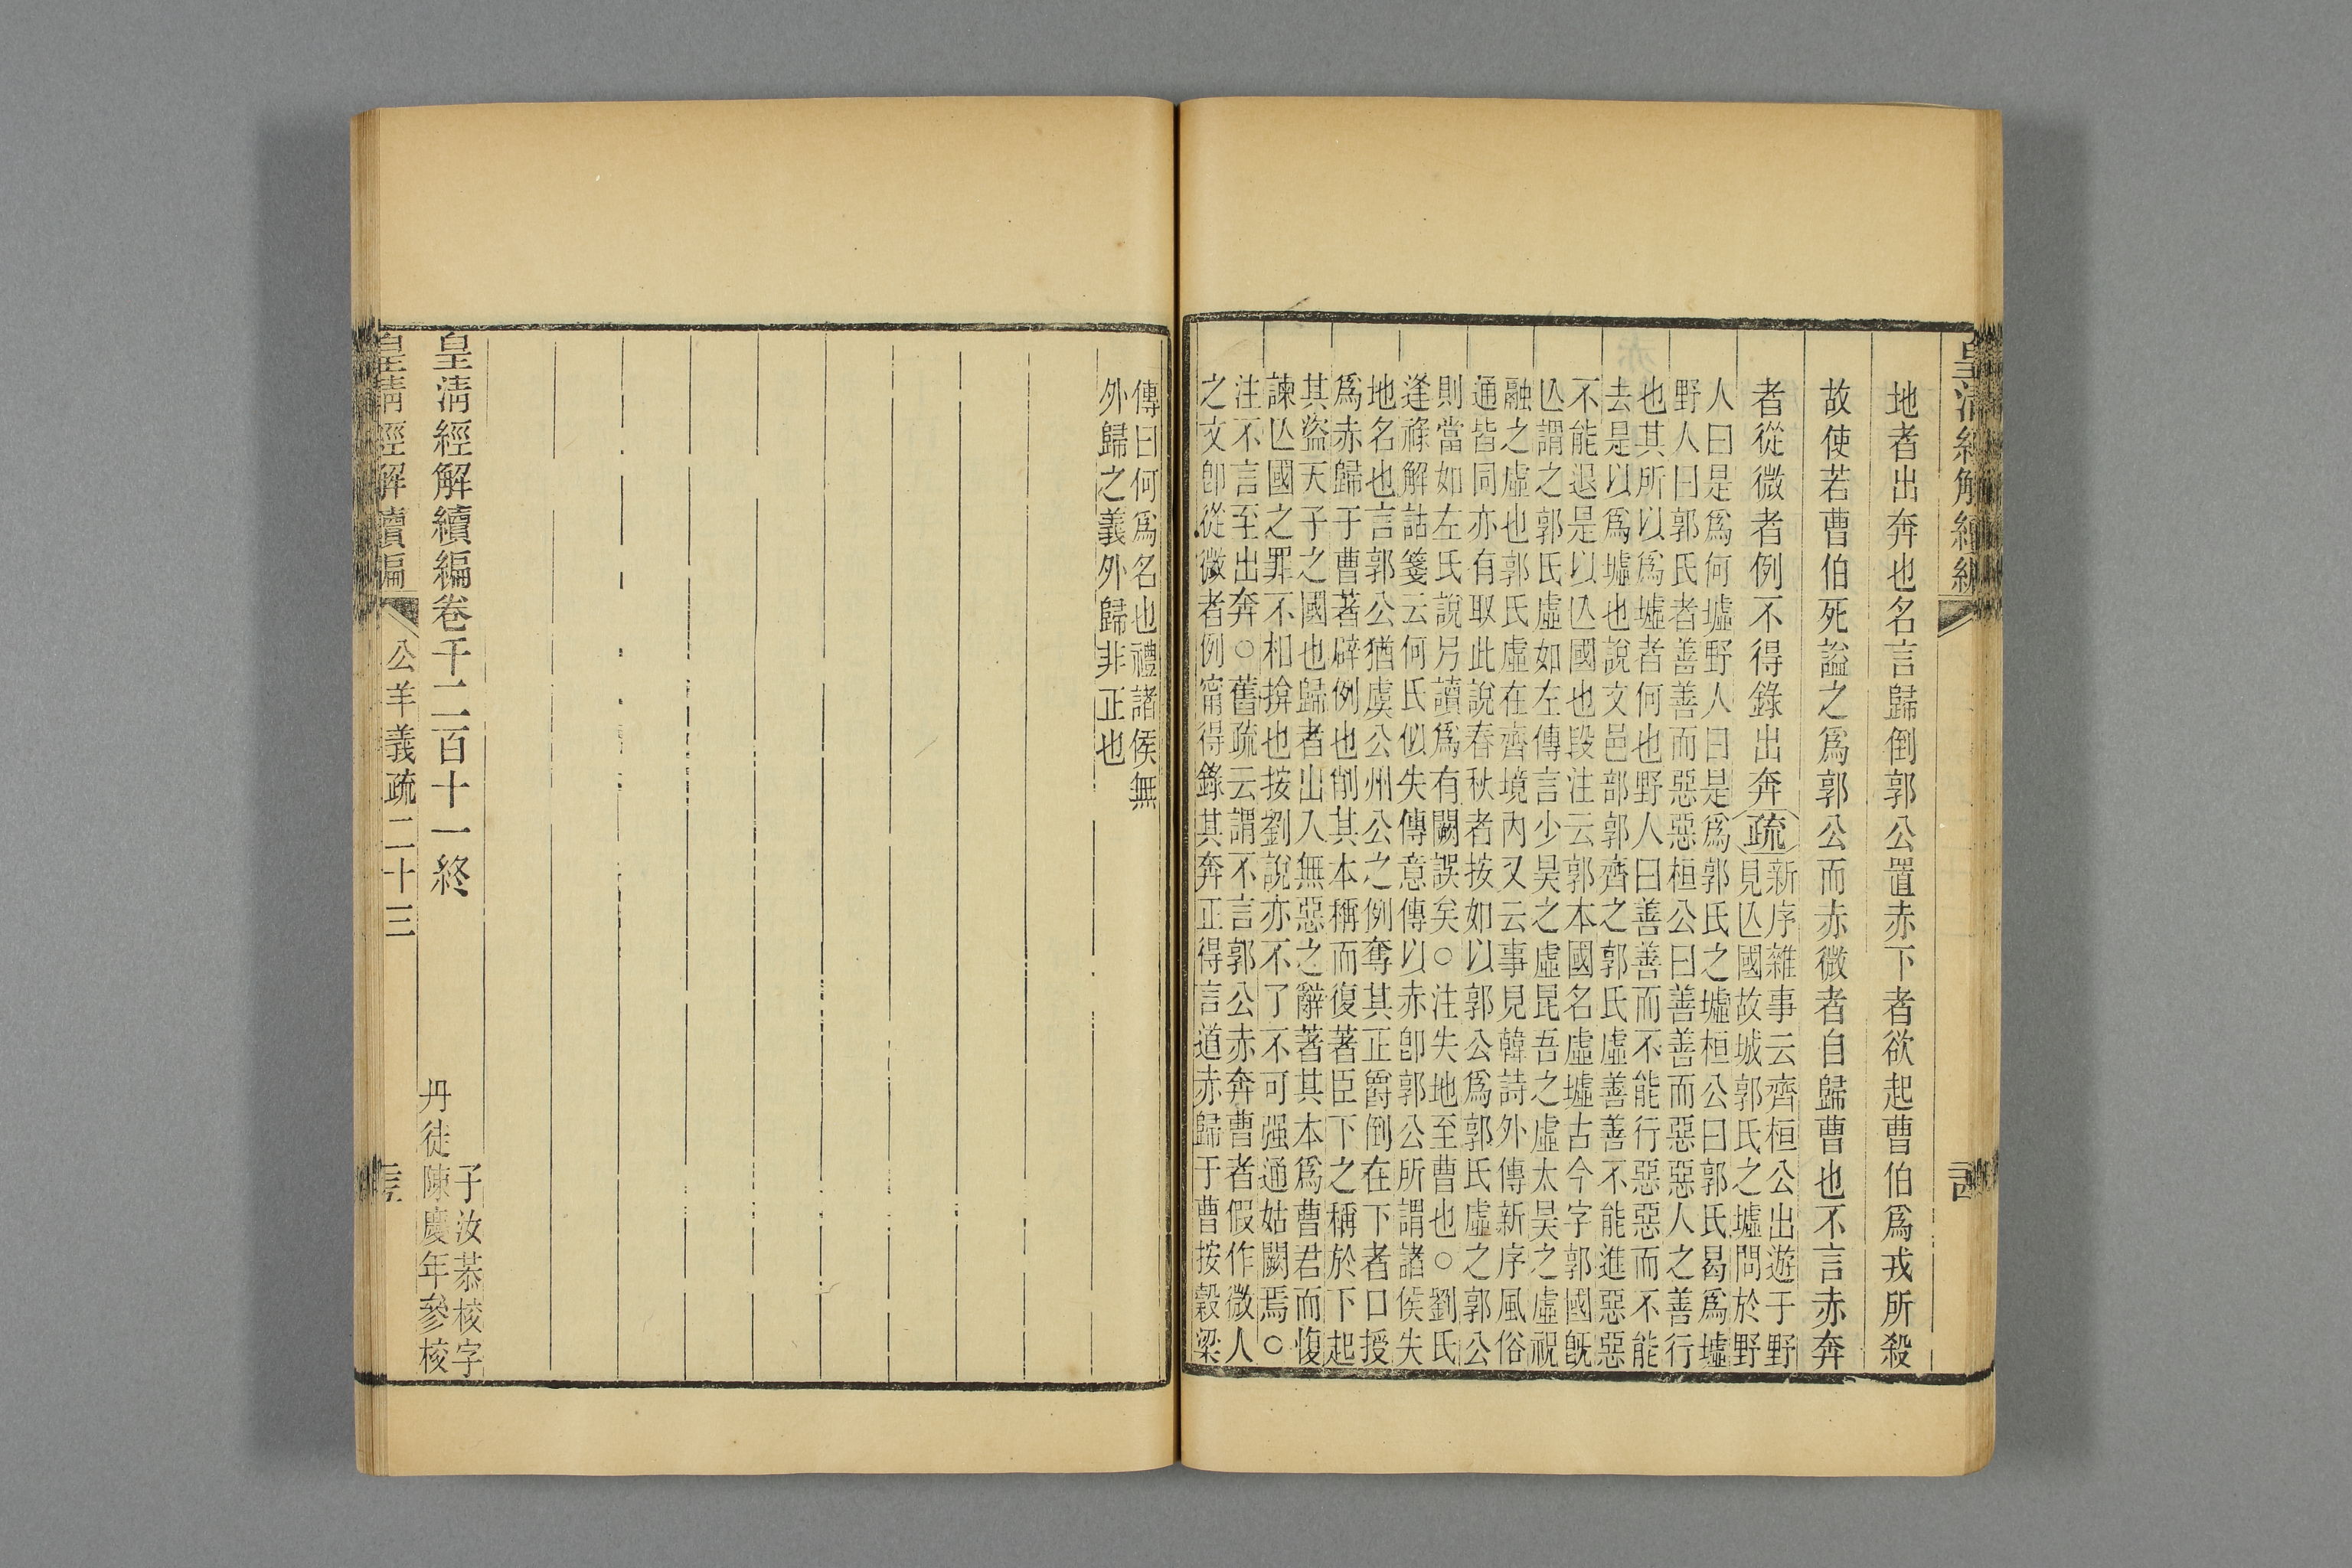 皇清經解續編
地者出奔也名言歸倒郭公置赤下者欲起曹伯爲戎所殺
故使若曹伯死謚之爲郭公而赤微者自歸曹也不言赤奔
者從微者例不得錄出奔疏
新序雜事云齊桓公出遊于野
見亾國故城郭氏之墟問於野
人曰是爲何墟野人曰是爲郭氏之墟桓公曰郭氏曷爲墟
野人曰郭氏者善善而惡惡桓公曰善善而惡惡人之善行
也其所以爲墟者何也野人曰善善而不能行惡惡而不能
去是以爲墟也說文邑部郭齊之郭氏虛善善不能進惡惡
不能退是以亾國也段注云郭本國名虛墟古今字郭國旣
亾謂之郭氏虛如左傳言少昊之虛昆吾之虛太昊之虛祝
融之虛也郭氏虛在齊境內又云事見韓詩外傳新序風俗
通皆同亦有取此說春秋者按如以郭公爲郭氏虛之郭公
則當如左氏說另讀爲有闕誤矣○注失地至曹也○劉氏
逢祿解詁箋云何氏似失傳意傳以赤卽郭公所謂諸侯失
地名也言郭公猶虞公州公之例奪其正爵倒在下者口授
爲赤歸于曹著辟例也削其本稱而復著臣下之稱於下起
其盜天子之國也歸者出入無惡之辭著其本爲曹君而愎
諫亾國之罪不相揜也按劉說亦不了不可强通姑闕焉○
注不言至出奔○舊疏云謂不言郭公赤奔曹者假作微人
之文卽從微者例甯得錄其奔正得言道赤歸于曹按穀梁
傳曰何爲名也禮諸侯無
外歸之義外歸非正也
皇清經解續編卷千二百十一終
子汝恭校字
丹徒陳慶年參校
皇清經解續編
公羊義疏二十三